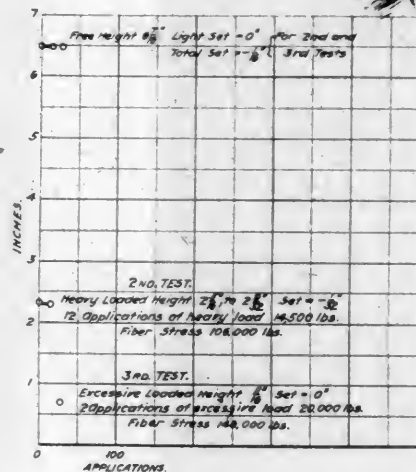 7
Free Height Light Set = 0" For 2nd and
Total Set = - 3rd Tests
6
5
4
3
2ND. TEST.
Heavy Loaded Height to Set =
2
12 Applications of heavy load 14,500 lbs.
Fiber Stress 106,000 lbs.
3RD. TEST.
1
Excessive Loaded Height Set = 0"
20 applications of excessive load 20,000 lbs.
Fiber Stress lbs.
0
0 100
APPLICATIONS.
INCHES.